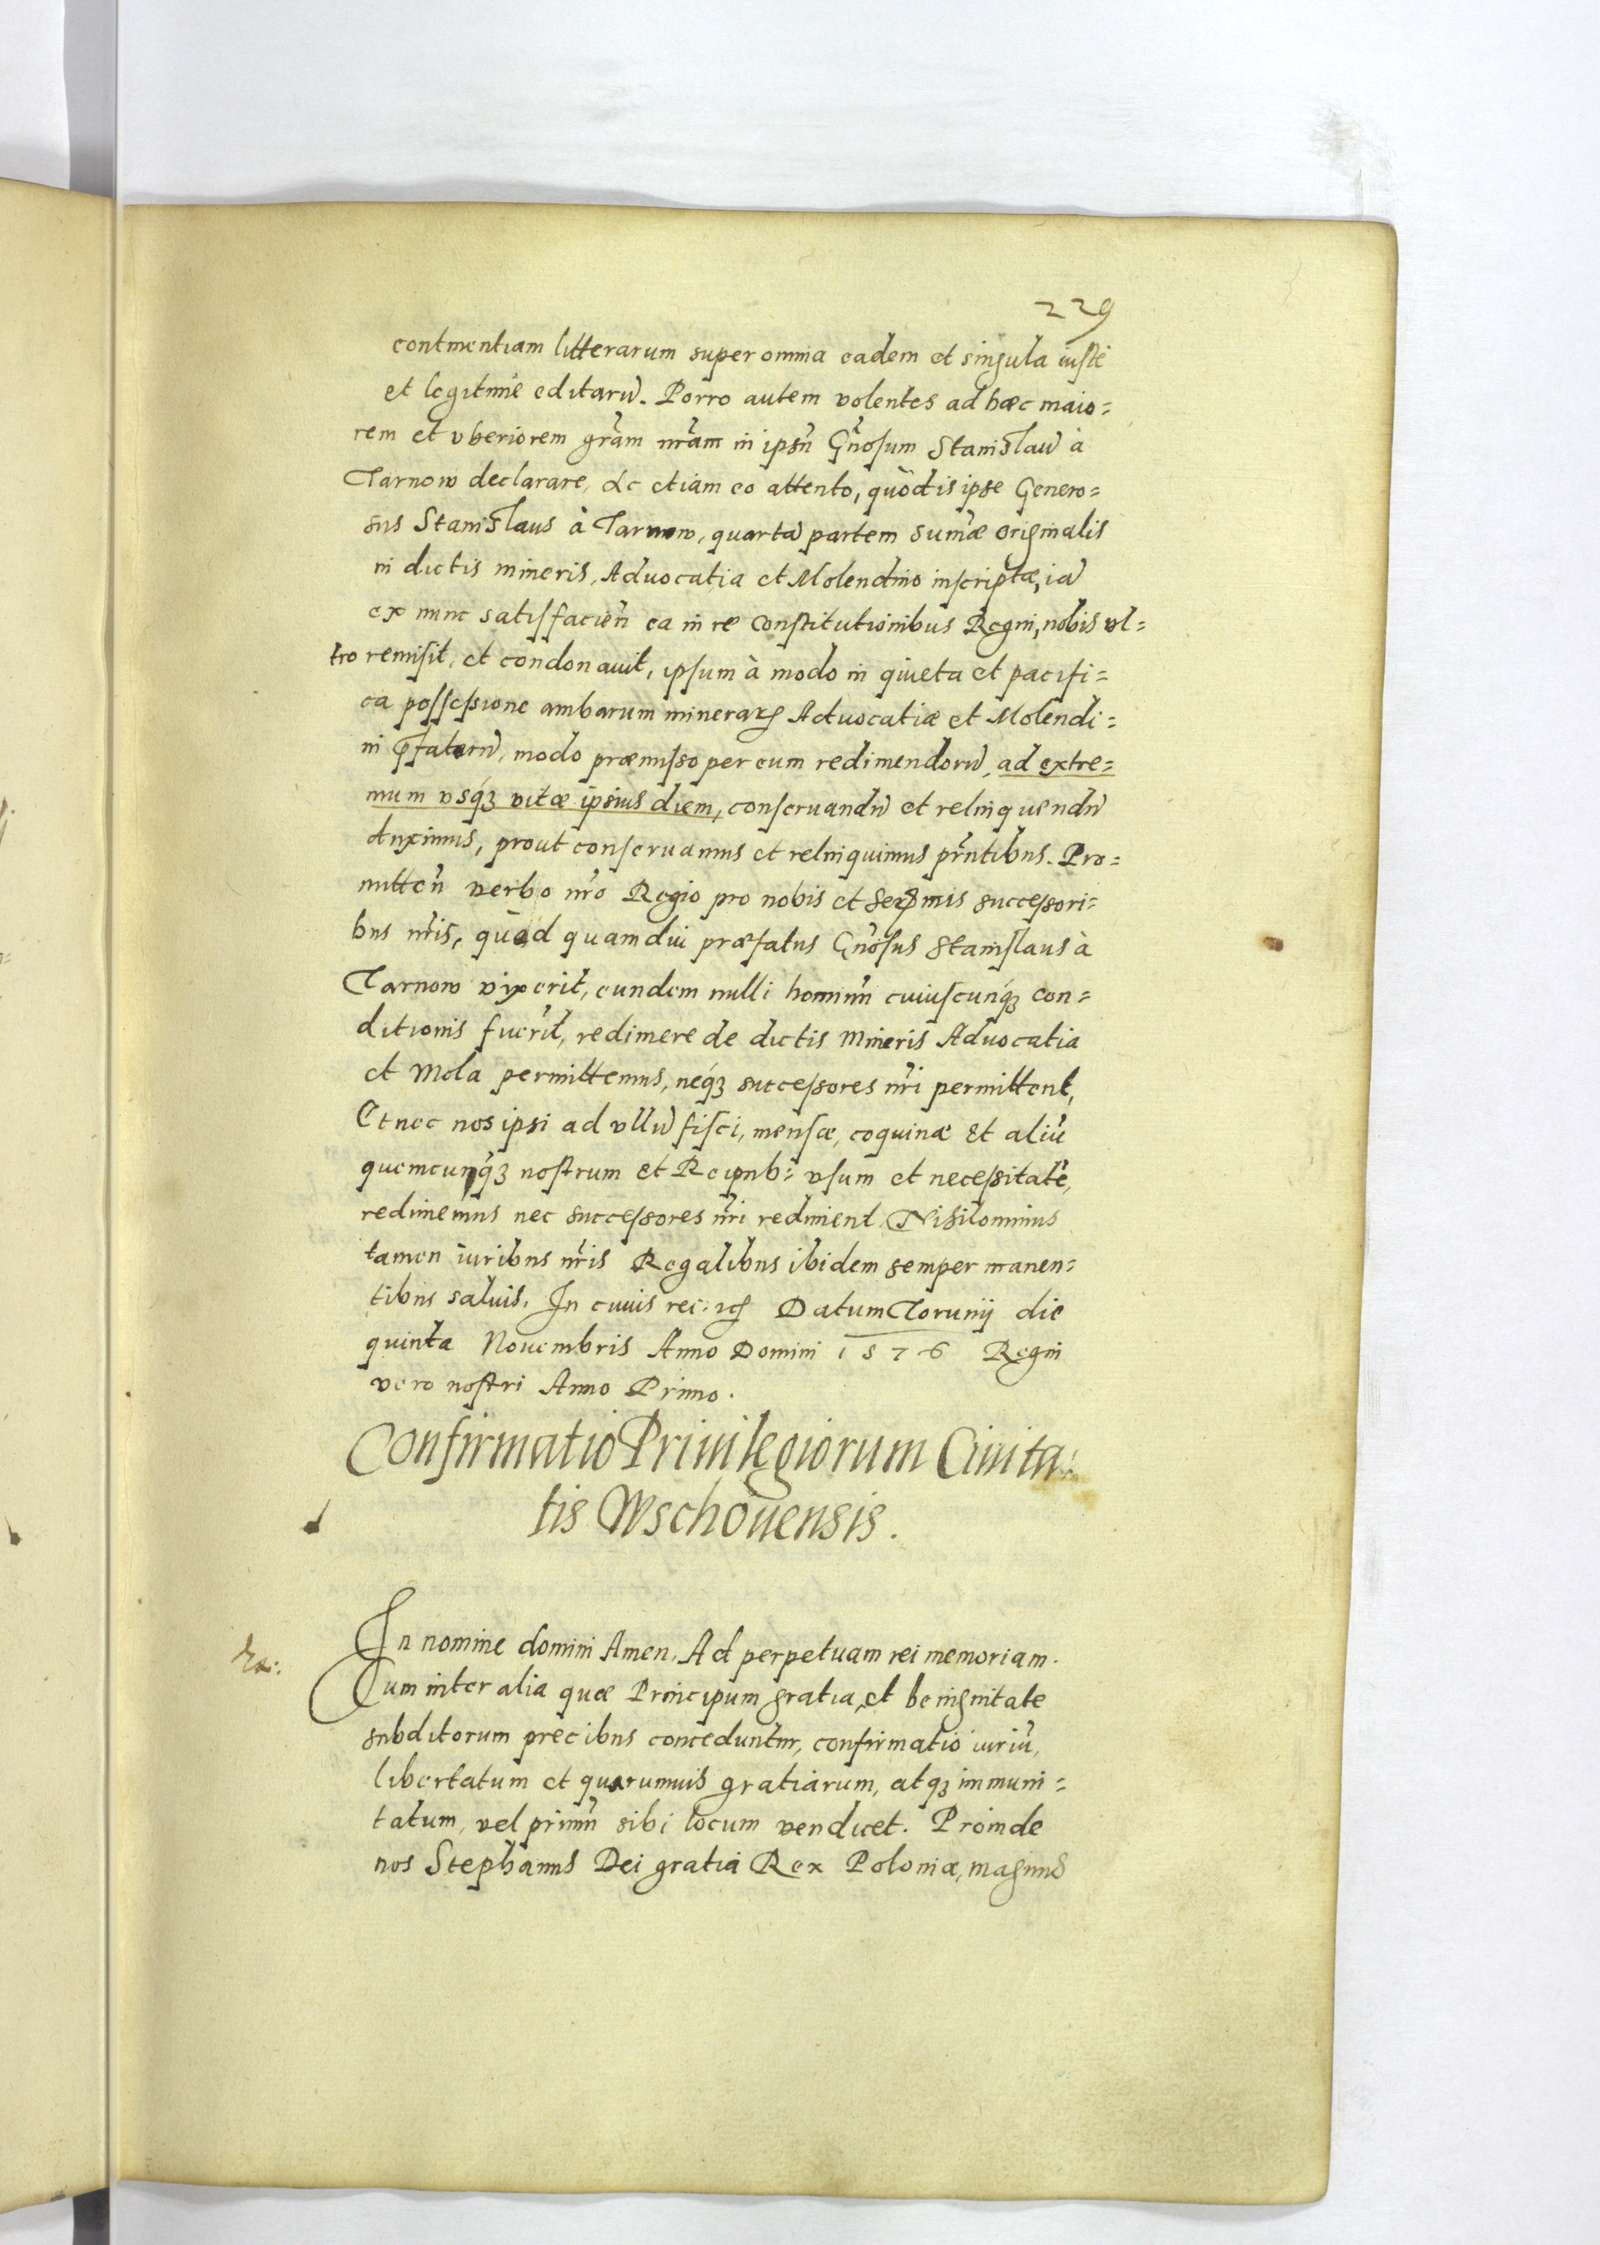 229
continentiam litterarum super omnia eadem et singula iustè
et legitimè editarũ. Porro autem volentes ad hæc maio=
rem et vberiorem gr̃am nr̃am in ipsũ Gñosum Stanislaũ à
Tarnow declarare, Ac etiam eo attento, quòd is ipse Genero=
sus Stanislaus à Tarnow, quartã partem sum̃æ originalis
in dictis mineris, Aduocatia et Molendino inscriptæ, iã
ex nunc satisfacien̄ ea in re Constitutionibus Regni, nobis vl=
tro remisit, et condonauit, ipsum à modo in quieta et pacifi=
ca possessione ambarum minerarꝝ Aduocatiæ et Molendi=
ni p̃fatorũ, modo præmisso per eum redimendorũ, ad extre=
mum vsq́ꝫ vitæ ipsius diem, conseruandũ et relinquendũ
duximus, prout conseruamus et relinquimus pr̃ntibus. Pro=
mitten̄ verbo nr̃o Regio pro nobis et Serꝫmis successori=
bus nr̃is, quod quamdiu præfatus Gñosus Stanislaus à
Tarnow vixerit, eundem nulli hominũ cuiuscunq́ꝫ con=
ditionis fuerit, redimere de dictis Mineris Aduocatia
et Mola permittemus, neq́ꝫ successores nr̃i permittent,
Et nec nos ipsi ad vllũ fisci, mensæ, coquinæ Et aliũ
quemcunq́ꝫ nostrum et Reipub: vsum et necessitatẽ,
redimemus nec successores nr̃i rediment. Nihilominus
tamen iuribus nr̃is Regalibus ibidem semper manen=
tibus saluis. In cuius rei ꝛcꝭ Datum Torunij die
quinta Nouembris Anno Domini 1576 Regni
vero nostri Anno Primo.
Confirmatio Priuilegiorum Ciuita=
tis Wschouensis.
In nomine domini Amen, Ad perpetuam rei memoriam.
Cum inter alia quæ Principum gratia, et benignitate
subditorum precibus conceduntur, confirmatio iuriũ,
libertatum et quarumuis gratiarum, atqꝫ immuni=
tatum, vel primũ sibi locum vendicet. Proinde
nos Stephanus Dei gratia Rex Poloniæ, magnus